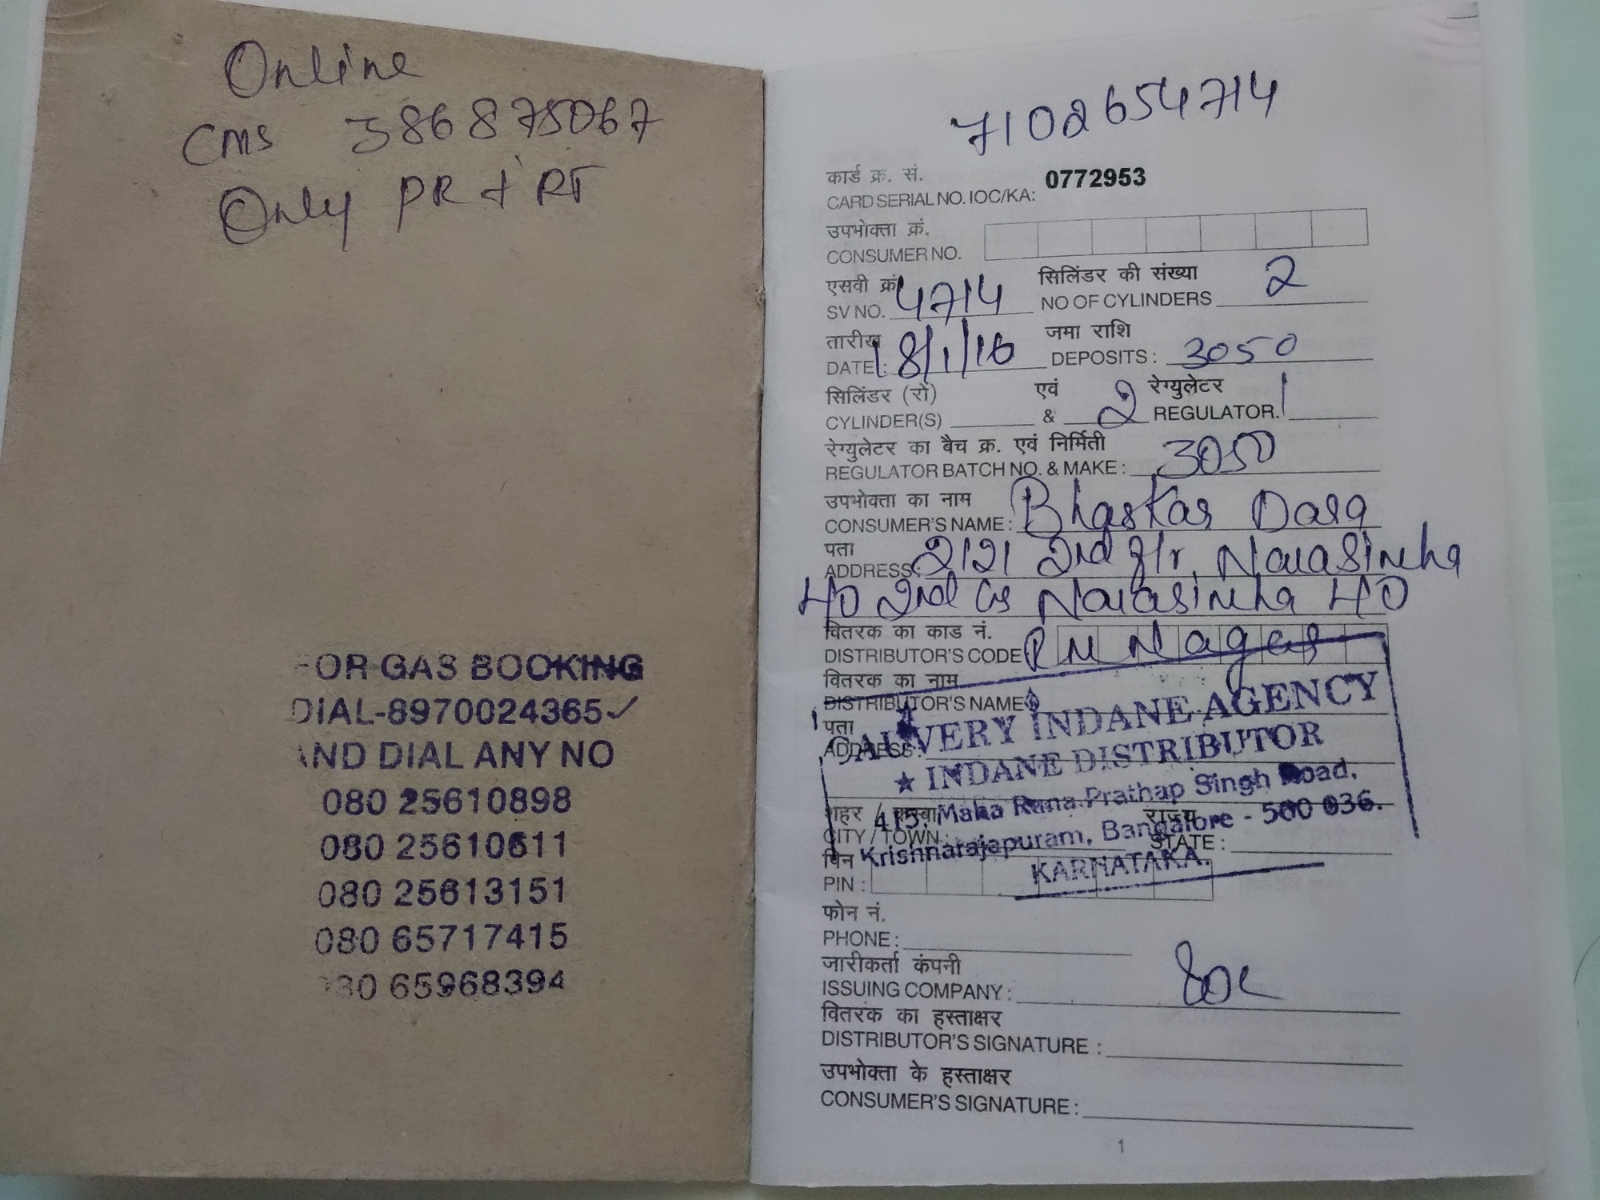 Online
CMS 386875067
Only PR + RT
FOR GAS BOOKING
DIAL-8970024365✓
AND DIAL ANY NO
080 25610898
080 25610611
080 25613151
080 65717415
080 65968394
7102654714
कार्ड क्र. सं.
CARD SERIAL NO. IOC/KA: 0772953
उपभोक्ता क्रं.
CONSUMER NO.
एसवी क्रं सिलिंडर की संख्या
SV NO. 4714 NO OF CYLINDERS 2
तारीख जमा राशि
DATE: 18/1/16 DEPOSITS: 3050
सिलिंडर (रों) एवं रेग्युलेटर
CYLINDER(S) & 2 REGULATOR. 1
रेग्युलेटर का बैच क्र. एवं निर्मिती
REGULATOR BATCH NO. & MAKE: 3050
उपभोक्ता का नाम
CONSUMER'S NAME: Bhaskar
पता
ADDRESS: 2121 2nd Narasimha
2nd Narasimha
वितरक का काड नं.
DISTRIBUTOR'S CODE Nagar
वितरक का नाम
DISTRIBUTOR'S NAME
पता
ADDRESS:
CAUVERY INDANE AGENCY
★ INDANE DISTRIBUTOR
Maha Rana Prathap Singh Road,
Krishnarajapuram, Bangalore - 560 036.
KARNATAKA.
शहर / कस्बा राज्य
CITY / TOWN: STATE:
पिन
PIN:
फोन नं.
PHONE:
जारीकर्ता कंपनी
ISSUING COMPANY:
वितरक का हस्ताक्षर
DISTRIBUTOR'S SIGNATURE:
उपभोक्ता के हस्ताक्षर
CONSUMER'S SIGNATURE:
1